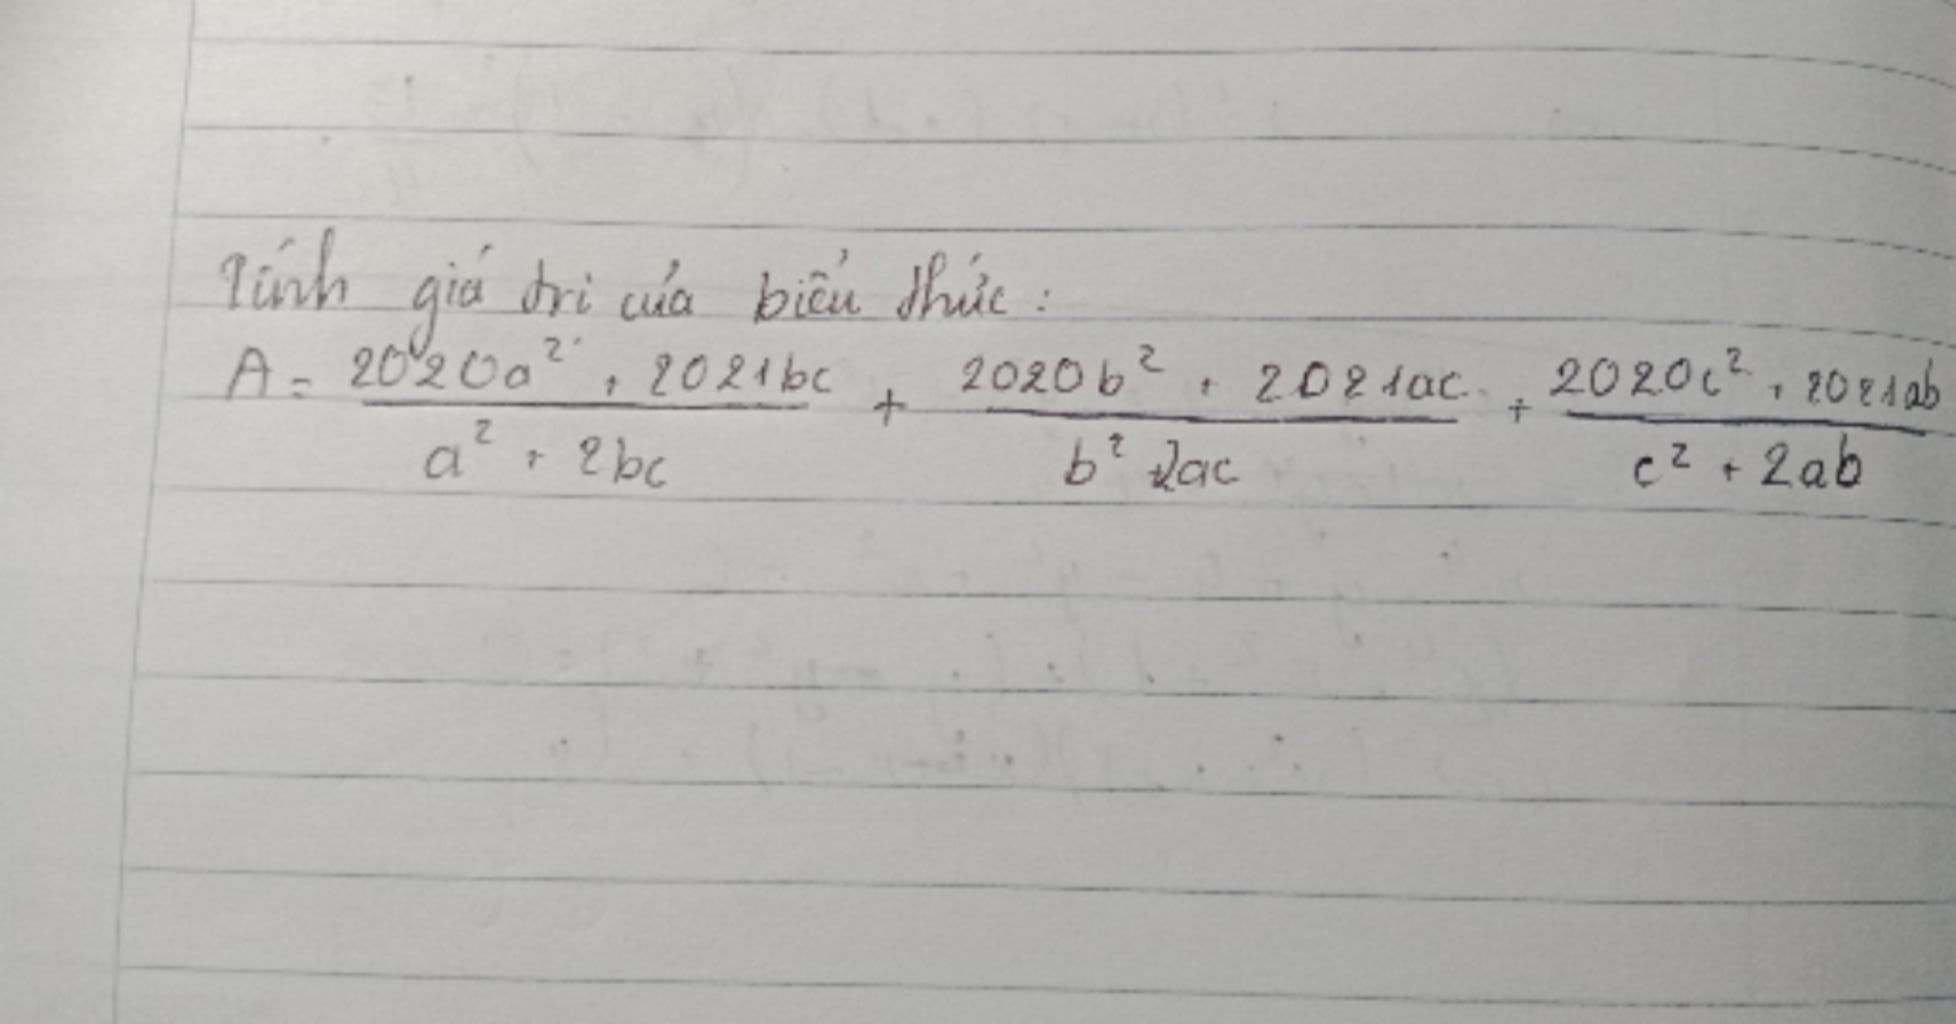 Tính giá tri của biểu thức:
A = \frac{2020a^2 + 2021bc}{a^2 + 2bc} + \frac{2020b^2 + 2021ac}{b^2 + 2ac} + \frac{2020c^2 + 2021ab}{c^2 + 2ab}